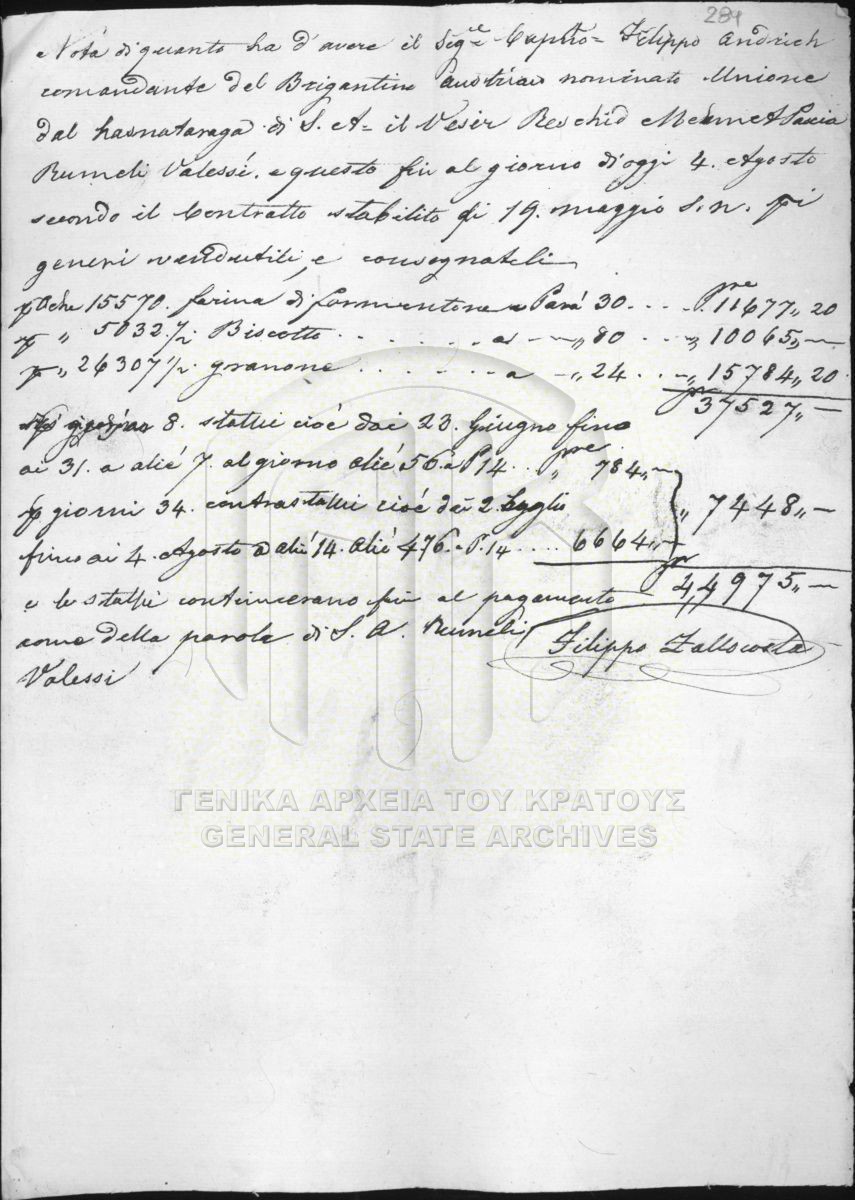 284
Nota di quanto ha d'avere il Sig.e Capitto= Filippo Andrich
comandante del Brigantino Austriaco nominato Unione
dal hasnataraga di S. A= il Vesir Reschid Mehmet Pascia
Rumeli Valessi. e questo fin al giorno di oggi 4. Agosto
secondo il Contratto stabilito di 19. maggio s.n. pi
generi vendutili, e consegnateli
p Oche 15570. farina di formentone a Pará 30 . . . . pre 11677,, 20
p ,, 5032 1/2. Biscotto . . . . . . . . a - - ,, 80 . . . ,, 10065,, —
p ,, 26307 1/2. granone . . . . . . . a - ,, 24 . . . ,, 15784,, 20
pre 37527,, —
8. stallie cioé dai 23. Giugno fino
ai 31. a alié 7. al giorno alié 56. a P 14 . . pre ,, 784,, —
p giorni 34. contrastallie cioé dai 2. Luglio ,, 7448,, —
fino ai 4. Agosto a alié 14. alié 476. a P. 14 . . . . 6664,, —
pre 44975,, —
e le stallie continuerano fin al pagamento
come della parola di S. A. Rumeli Filippo Zallocosta
Valessi
ΓΕΝΙΚΑ ΑΡΧΕΙΑ ΤΟΥ ΚΡΑΤΟΥΣ
GENERAL STATE ARCHIVES